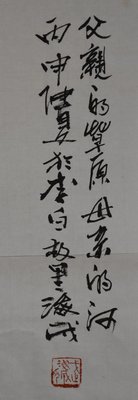 父親的草原母亲的河
丙申夏於李白故里